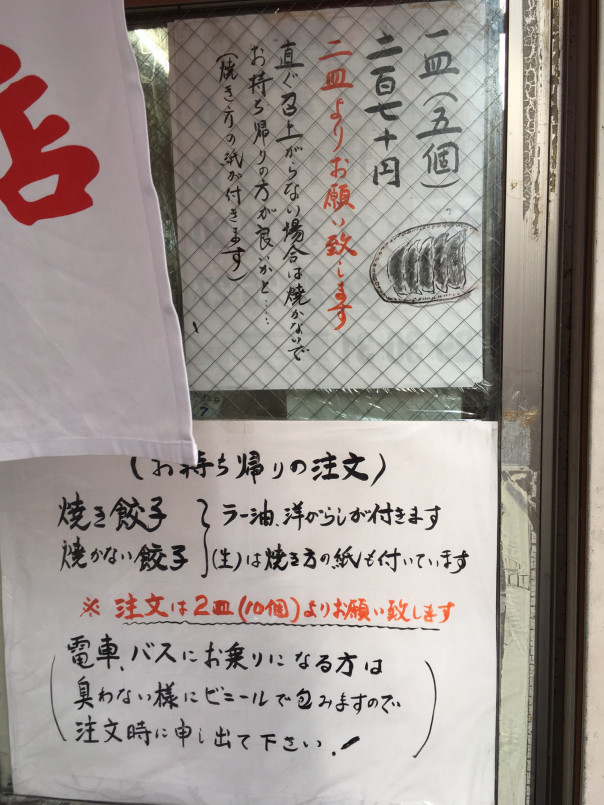 店
一皿(五個)
二百七十円
二皿よりお願い致します
直ぐ召上がらない場合は焼かないで
お持ち帰りの方が良いかと……
(焼き方の紙が付きます)
(お持ち帰りの注文)
焼き餃子
焼かない餃子
ラー油、洋がらしが付きます
(生)は焼き方の紙も付いています
※ 注文は2皿(10個)よりお願い致します
(電車、バスにお乗りになる方は
臭わない様にビニールで包みますので
注文時に申し出て下さい!)